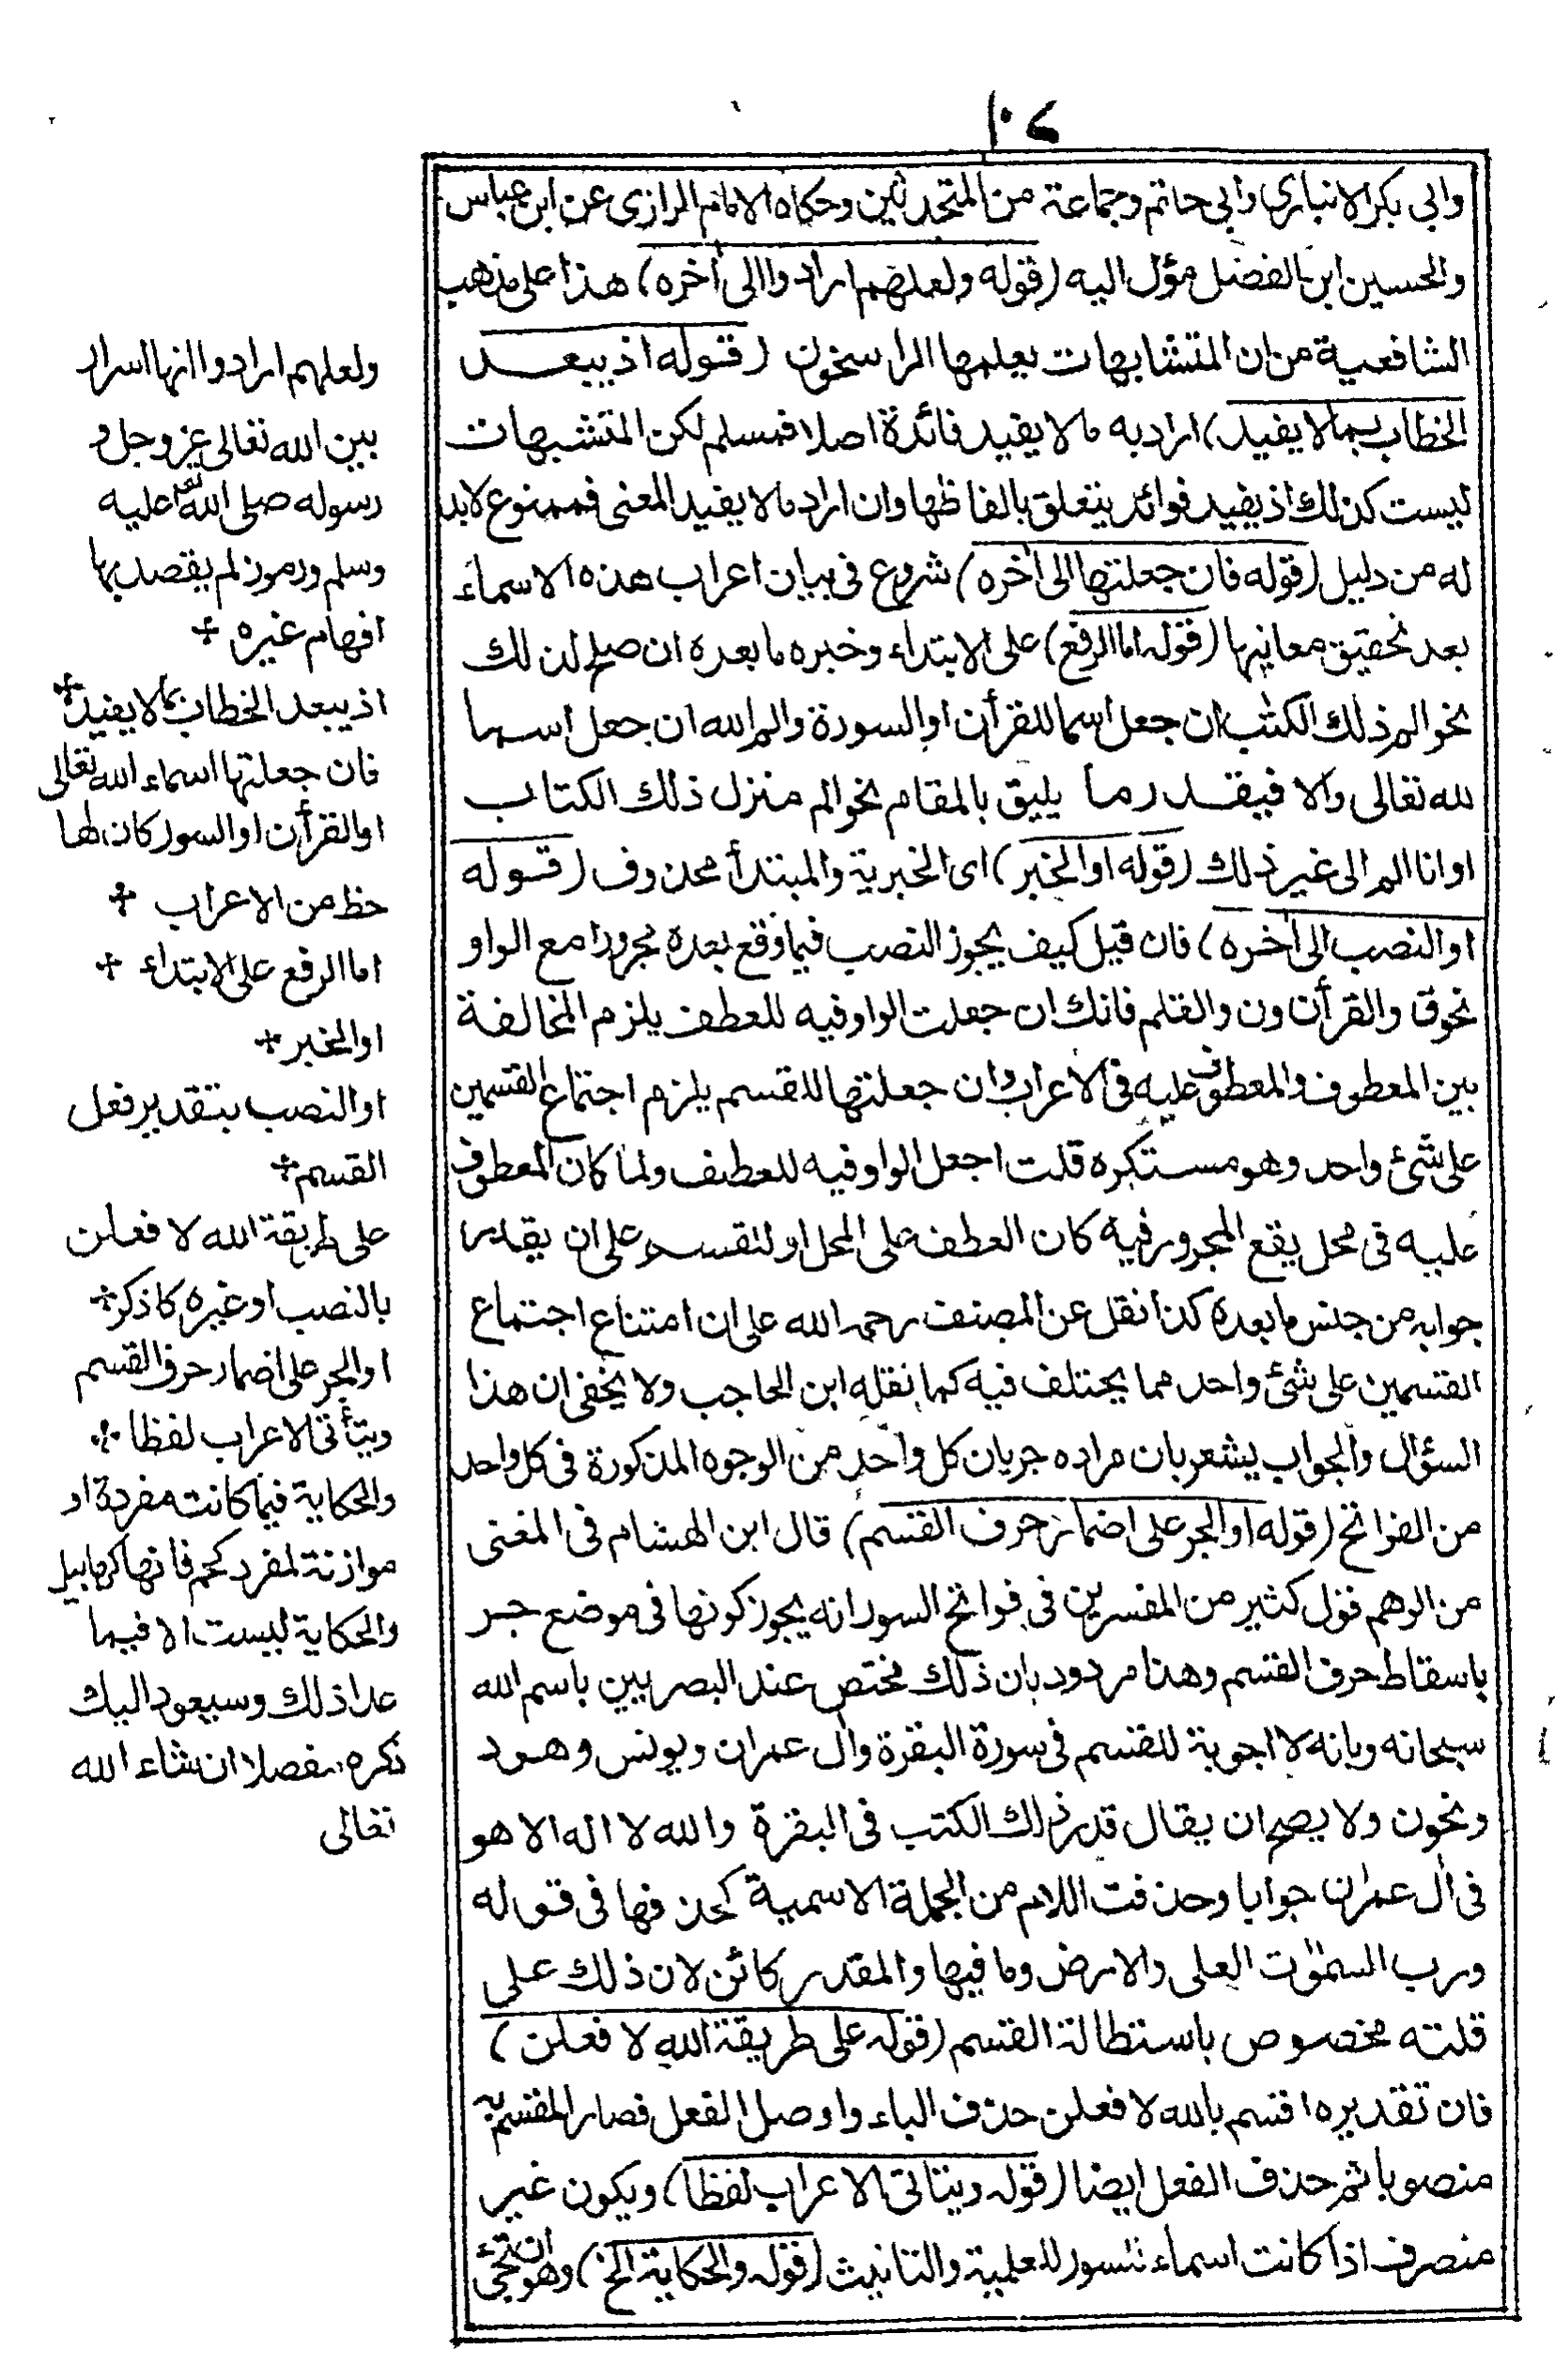 ١٠٧
وابى بكر الانبارى وابى حاتم وجماعة من المتحدثين وحكاه الامام الرازى عن ابن عباس
والحسين ابن الفضل مؤل اليه (قوله ولعلهم ارادوا الى اخره) هذا على مذهب
الشافعية من ان المتشابهات يعلمها الراسخون (قوله اذ يبعد
الخطاب بما لا يفيد) اراد به ما لا يفيد فائدة اصلا فمسلم لكن المتشبهات
ليست كذلك اذ يفيد فوائد يتعلق بالفاظها وان اراد ما لا يفيد المعنى فممنوع لا بد
له من دليل (قوله فان جعلتها الى اخره) شروع فى بيان اعراب هذه الاسماء
بعد تحقيق معانيها (قوله اما الرفع) على الابتداء وخبره ما بعده ان صلح لذلك
نحو الم ذلك الكتب ان جعل اسما للقرأن او السورة والم الله ان جعل اسما
لله تعالى والا فيقدر ما يليق بالمقام نحو الم منزل ذلك الكتاب
او انا الم الى غير ذلك (قوله او الخبر) اى الخبرية والمبتدأ محذوف (قوله
او النصب الى اخره) فان قيل كيف يجوز النصب فيما وقع بعده مجرورا مع الواو
نحو ق والقرأن ون والقلم فانك ان جعلت الواو فيه للعطف يلزم المخالفة
بين المعطوف والمعطوف عليه فى الاعراب وان جعلتها للقسم يلزم اجتماع القسمين
على شئ واحد وهو مستكره قلت اجعل الواو فيه للعطف ولما كان المعطوف
عليه فى محل يقع المجرور فيه كان العطف على المحل او للقسم على ان يقدر
جوابه من جنس ما بعده كذا نقل عن المصنف رحمه الله على ان امتناع اجتماع
القسمين على شئ واحد مما يختلف فيه كما نقله ابن الحاجب ولا يخفى ان هذا
السؤال والجواب يشعر بان مراده جريان كل واحد من الوجوه المذكورة فى كل واحد
من الفواتح (قوله او الجر على اضمار حرف القسم) قال ابن الهشام فى المغنى
من الوهم قول كثير من المفسرين فى فواتح السور انه يجوز كونها فى موضع جر
باسقاط حرف القسم وهذا مردود بان ذلك مختص عند البصريين باسم الله
سبحانه وبانه لا اجوبة للقسم فى سورة البقرة وال عمران ويونس وهود
ونحون ولا يصح ان يقال قدر ذلك الكتب فى البقرة والله لا اله الا هو
فى ال عمران جوابا وحذفت اللام من الجملة الاسمية كحذفها فى قوله
ورب السموت العلى والارض وما فيها والمقدر كائن لان ذلك على
قلته مخصوص باستطالة القسم (قوله على طريقة الله لافعلن)
فان تقديره اقسم بالله لافعلن حذف الباء واوصل الفعل فصار المقسم به
منصوبا ثم حذف الفعل ايضا (قوله ويتاتى الاعراب لفظا) ويكون غير
منصرف اذا كانت اسماء للسور للعلمية والتانيث (قوله والحكاية الخ) وهو ان تجئ
ولعلهم ارادوا انها اسرار
بين الله تعالى عز وجل و
رسوله صلى الله عليه
وسلم ورموز لم يقصد بها
افهام غيره
اذ يبعد الخطاب بما لا يفيد
فان جعلتها اسماء الله تعالى
او القرأن او السور كان لها
حظ من الاعراب
اما الرفع على الابتداء
او الخبر
او النصب بتقدير فعل
القسم
على طريقة الله لافعلن
بالنصب او غيره كما ذكر
او الجر على اضمار حرف القسم
ويتأتى الاعراب لفظا
والحكاية فيما كانت مفردة او
موازنة لمفرد كحم فانها كهابيل
والحكاية ليست الا فيما
عدا ذلك وسيعود اليك
ذكره مفصلا ان شاء الله
تعالى